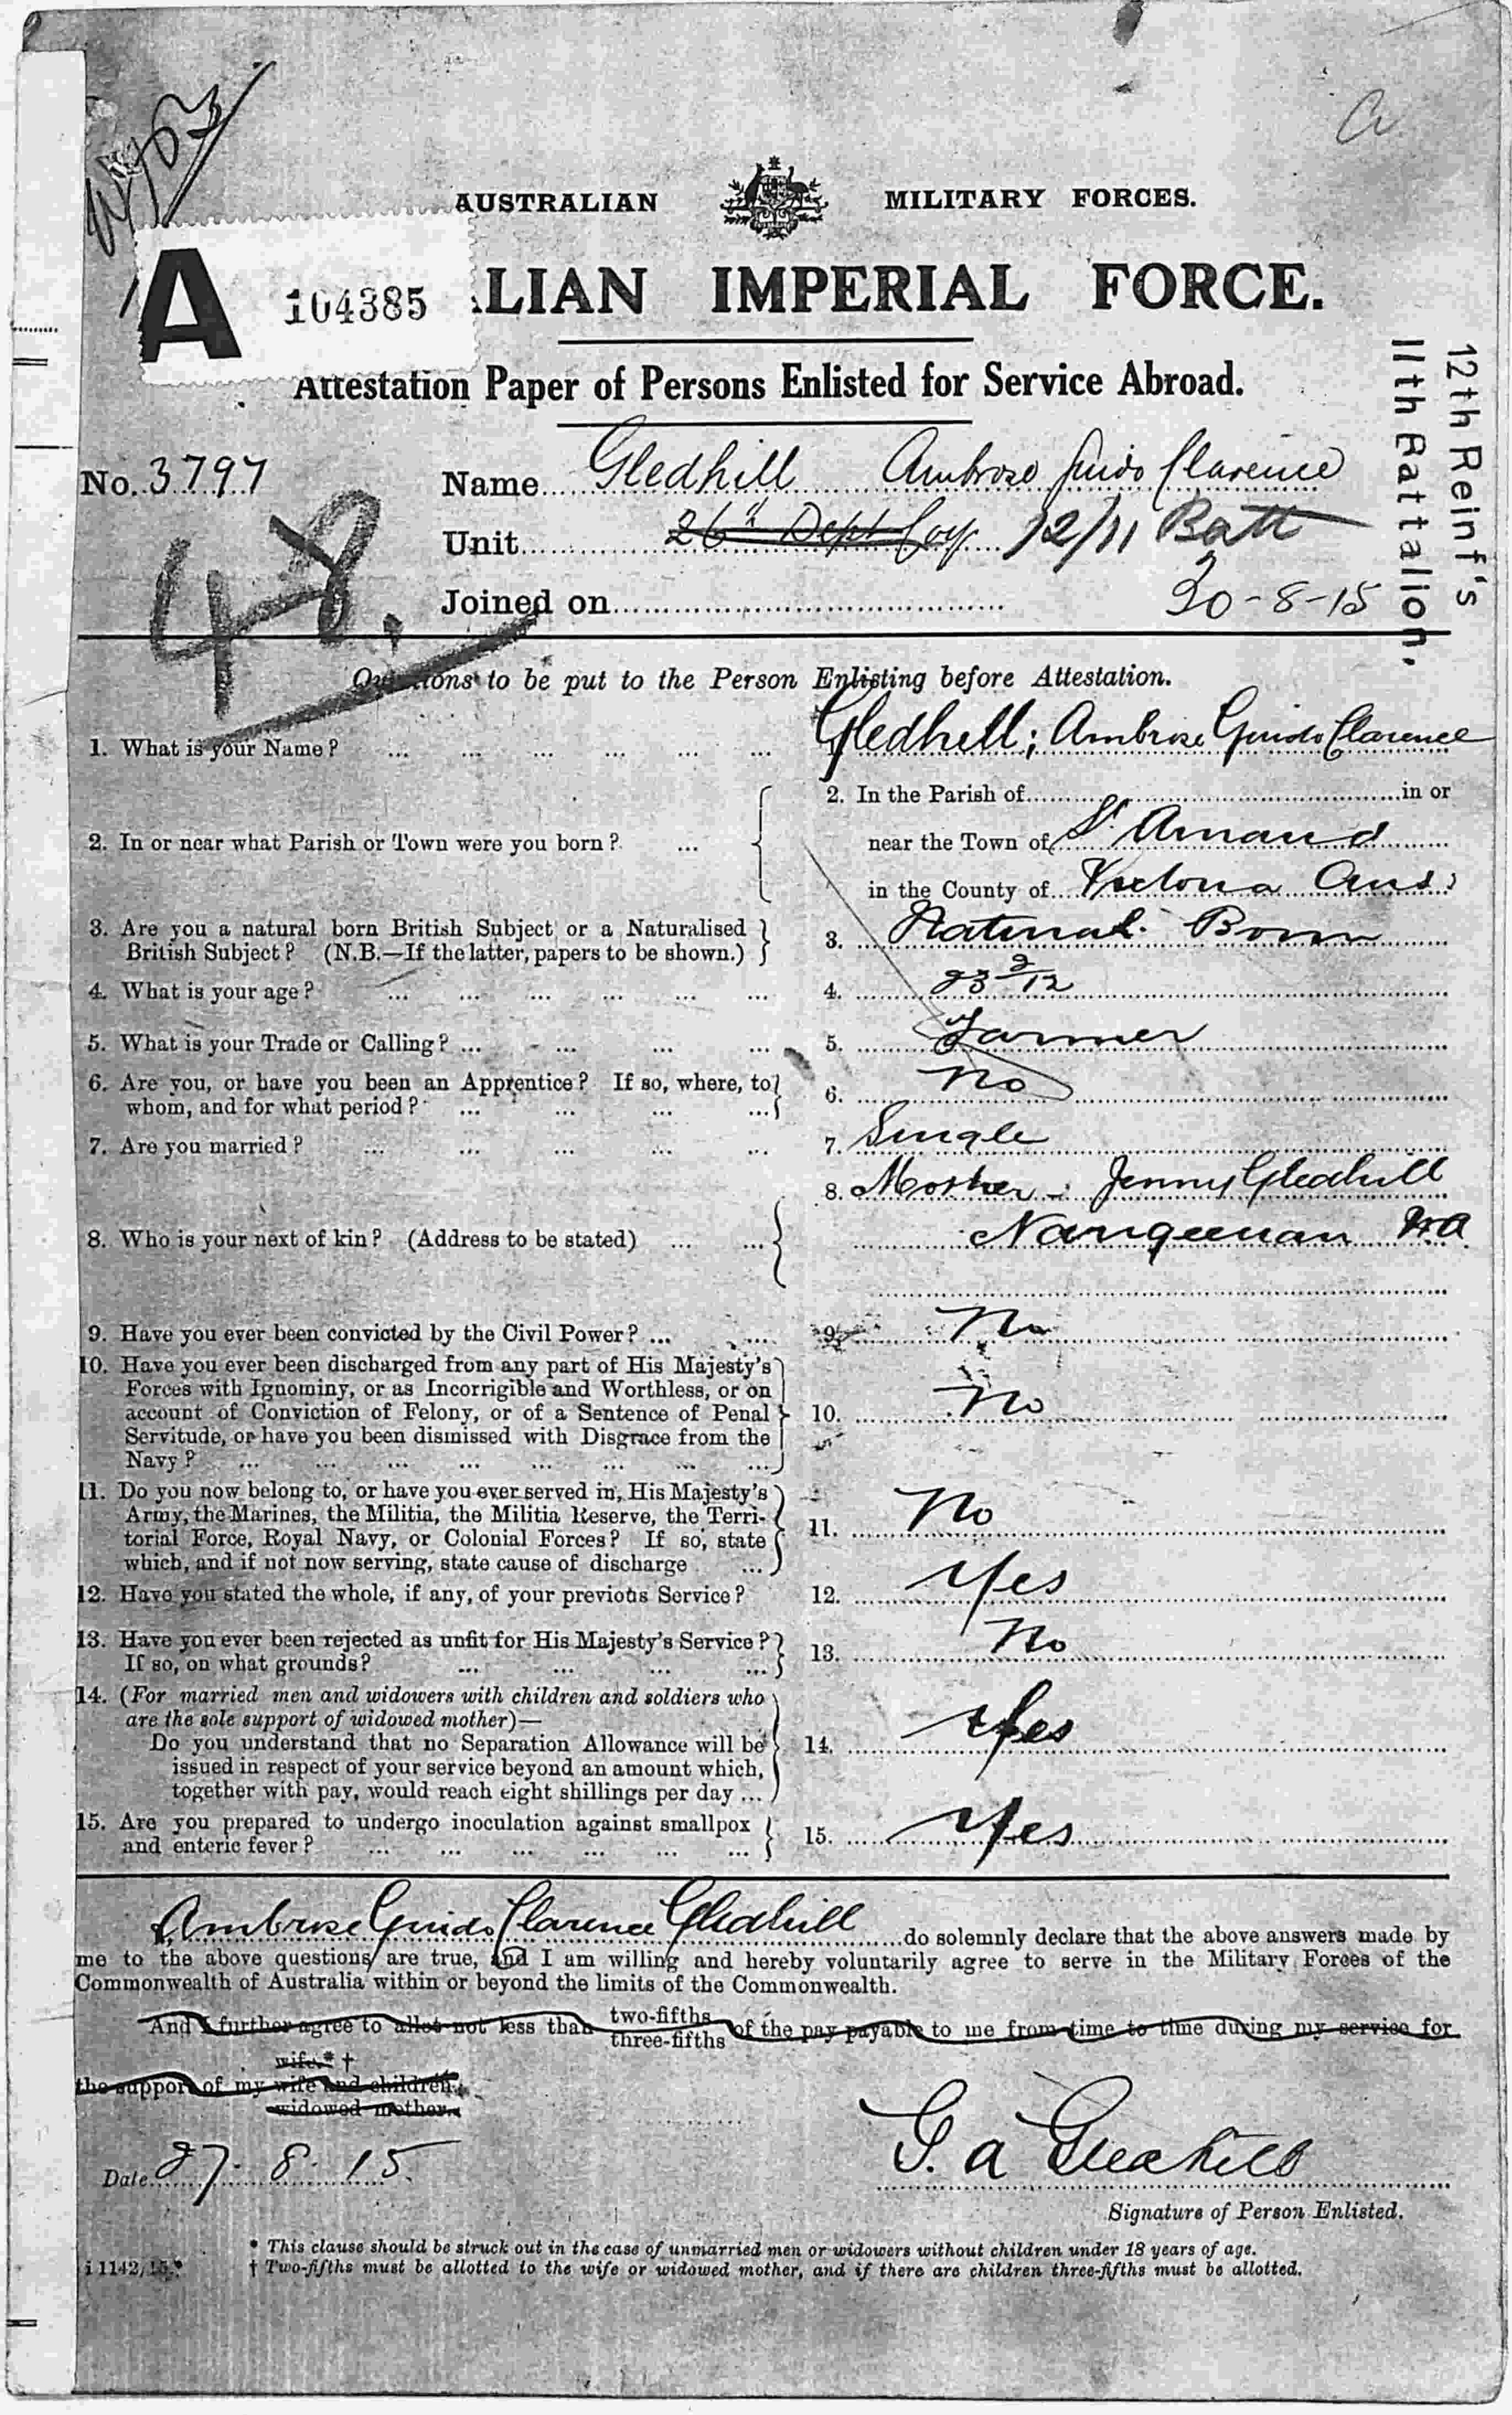 a
AUSTRALIAN MILITARY FORCES.
A 104385
LIAN IMPERIAL FORCE.
Attestation Paper of Persons Enlisted for Service Abroad.
12th Reinf's
11th Battalion.
No. 3797
48.
Name Gledhill Ambrose Guido Clarence
Unit 26th Dept Coy 12/11 Batt
Joined on 30-8-15
Questions to be put to the Person Enlisting before Attestation.
1. What is your Name? ... ... ... ... ... ... Gledhill; Ambrose Guido Clarence
2. In or near what Parish or Town were you born? ...
2. In the Parish of in or
near the Town of St. Arnaud
in the County of Victoria Aus
3. Are you a natural born British Subject or a Naturalised
British Subject? (N.B.—If the latter, papers to be shown.)
3. Natural Born
4. What is your age? ... ... ... ... ... ... 4. 23 2/12
5. What is your Trade or Calling? ... ... ... ... 5. Farmer
6. Are you, or have you been an Apprentice? If so, where, to
whom, and for what period? ... ... ... ...
6. No
7. Are you married? ... ... ... ... ... 7. Single
8. Who is your next of kin? (Address to be stated) ... ...
8. Mother - Jenny Gledhill
Nangeenan W.A.
9. Have you ever been convicted by the Civil Power? ... ... 9. No
10. Have you ever been discharged from any part of His Majesty's
Forces with Ignominy, or as Incorrigible and Worthless, or on
account of Conviction of Felony, or of a Sentence of Penal
Servitude, or have you been dismissed with Disgrace from the
Navy? ... ... ... ... ... ... ... ...
10. No
11. Do you now belong to, or have you ever served in, His Majesty's
Army, the Marines, the Militia, the Militia Reserve, the Terri-
torial Force, Royal Navy, or Colonial Forces? If so, state
which, and if not now serving, state cause of discharge ...
11. No
12. Have you stated the whole, if any, of your previous Service? 12. Yes
13. Have you ever been rejected as unfit for His Majesty's Service?
If so, on what grounds? ... ... ... ...
13. No
14. (For married men and widowers with children and soldiers who
are the sole support of widowed mother)—
Do you understand that no Separation Allowance will be
issued in respect of your service beyond an amount which,
together with pay, would reach eight shillings per day ...
14. Yes
15. Are you prepared to undergo inoculation against smallpox
and enteric fever? ... ... ... ... ... ...
15. Yes
Ambrose Guido Clarence Gledhill do solemnly declare that the above answers made by
me to the above questions are true, and I am willing and hereby voluntarily agree to serve in the Military Forces of the
Commonwealth of Australia within or beyond the limits of the Commonwealth.
And I further agree to allot not less than two-fifths three-fifths of the pay payable to me from time to time during my service for
wife.* †
the support of my wife and children.
widowed mother.
Date 27. 8. 15.
G. A Gledhill
Signature of Person Enlisted.
* This clause should be struck out in the case of unmarried men or widowers without children under 18 years of age.
† Two-fifths must be allotted to the wife or widowed mother, and if there are children three-fifths must be allotted.
i 1142/15.*